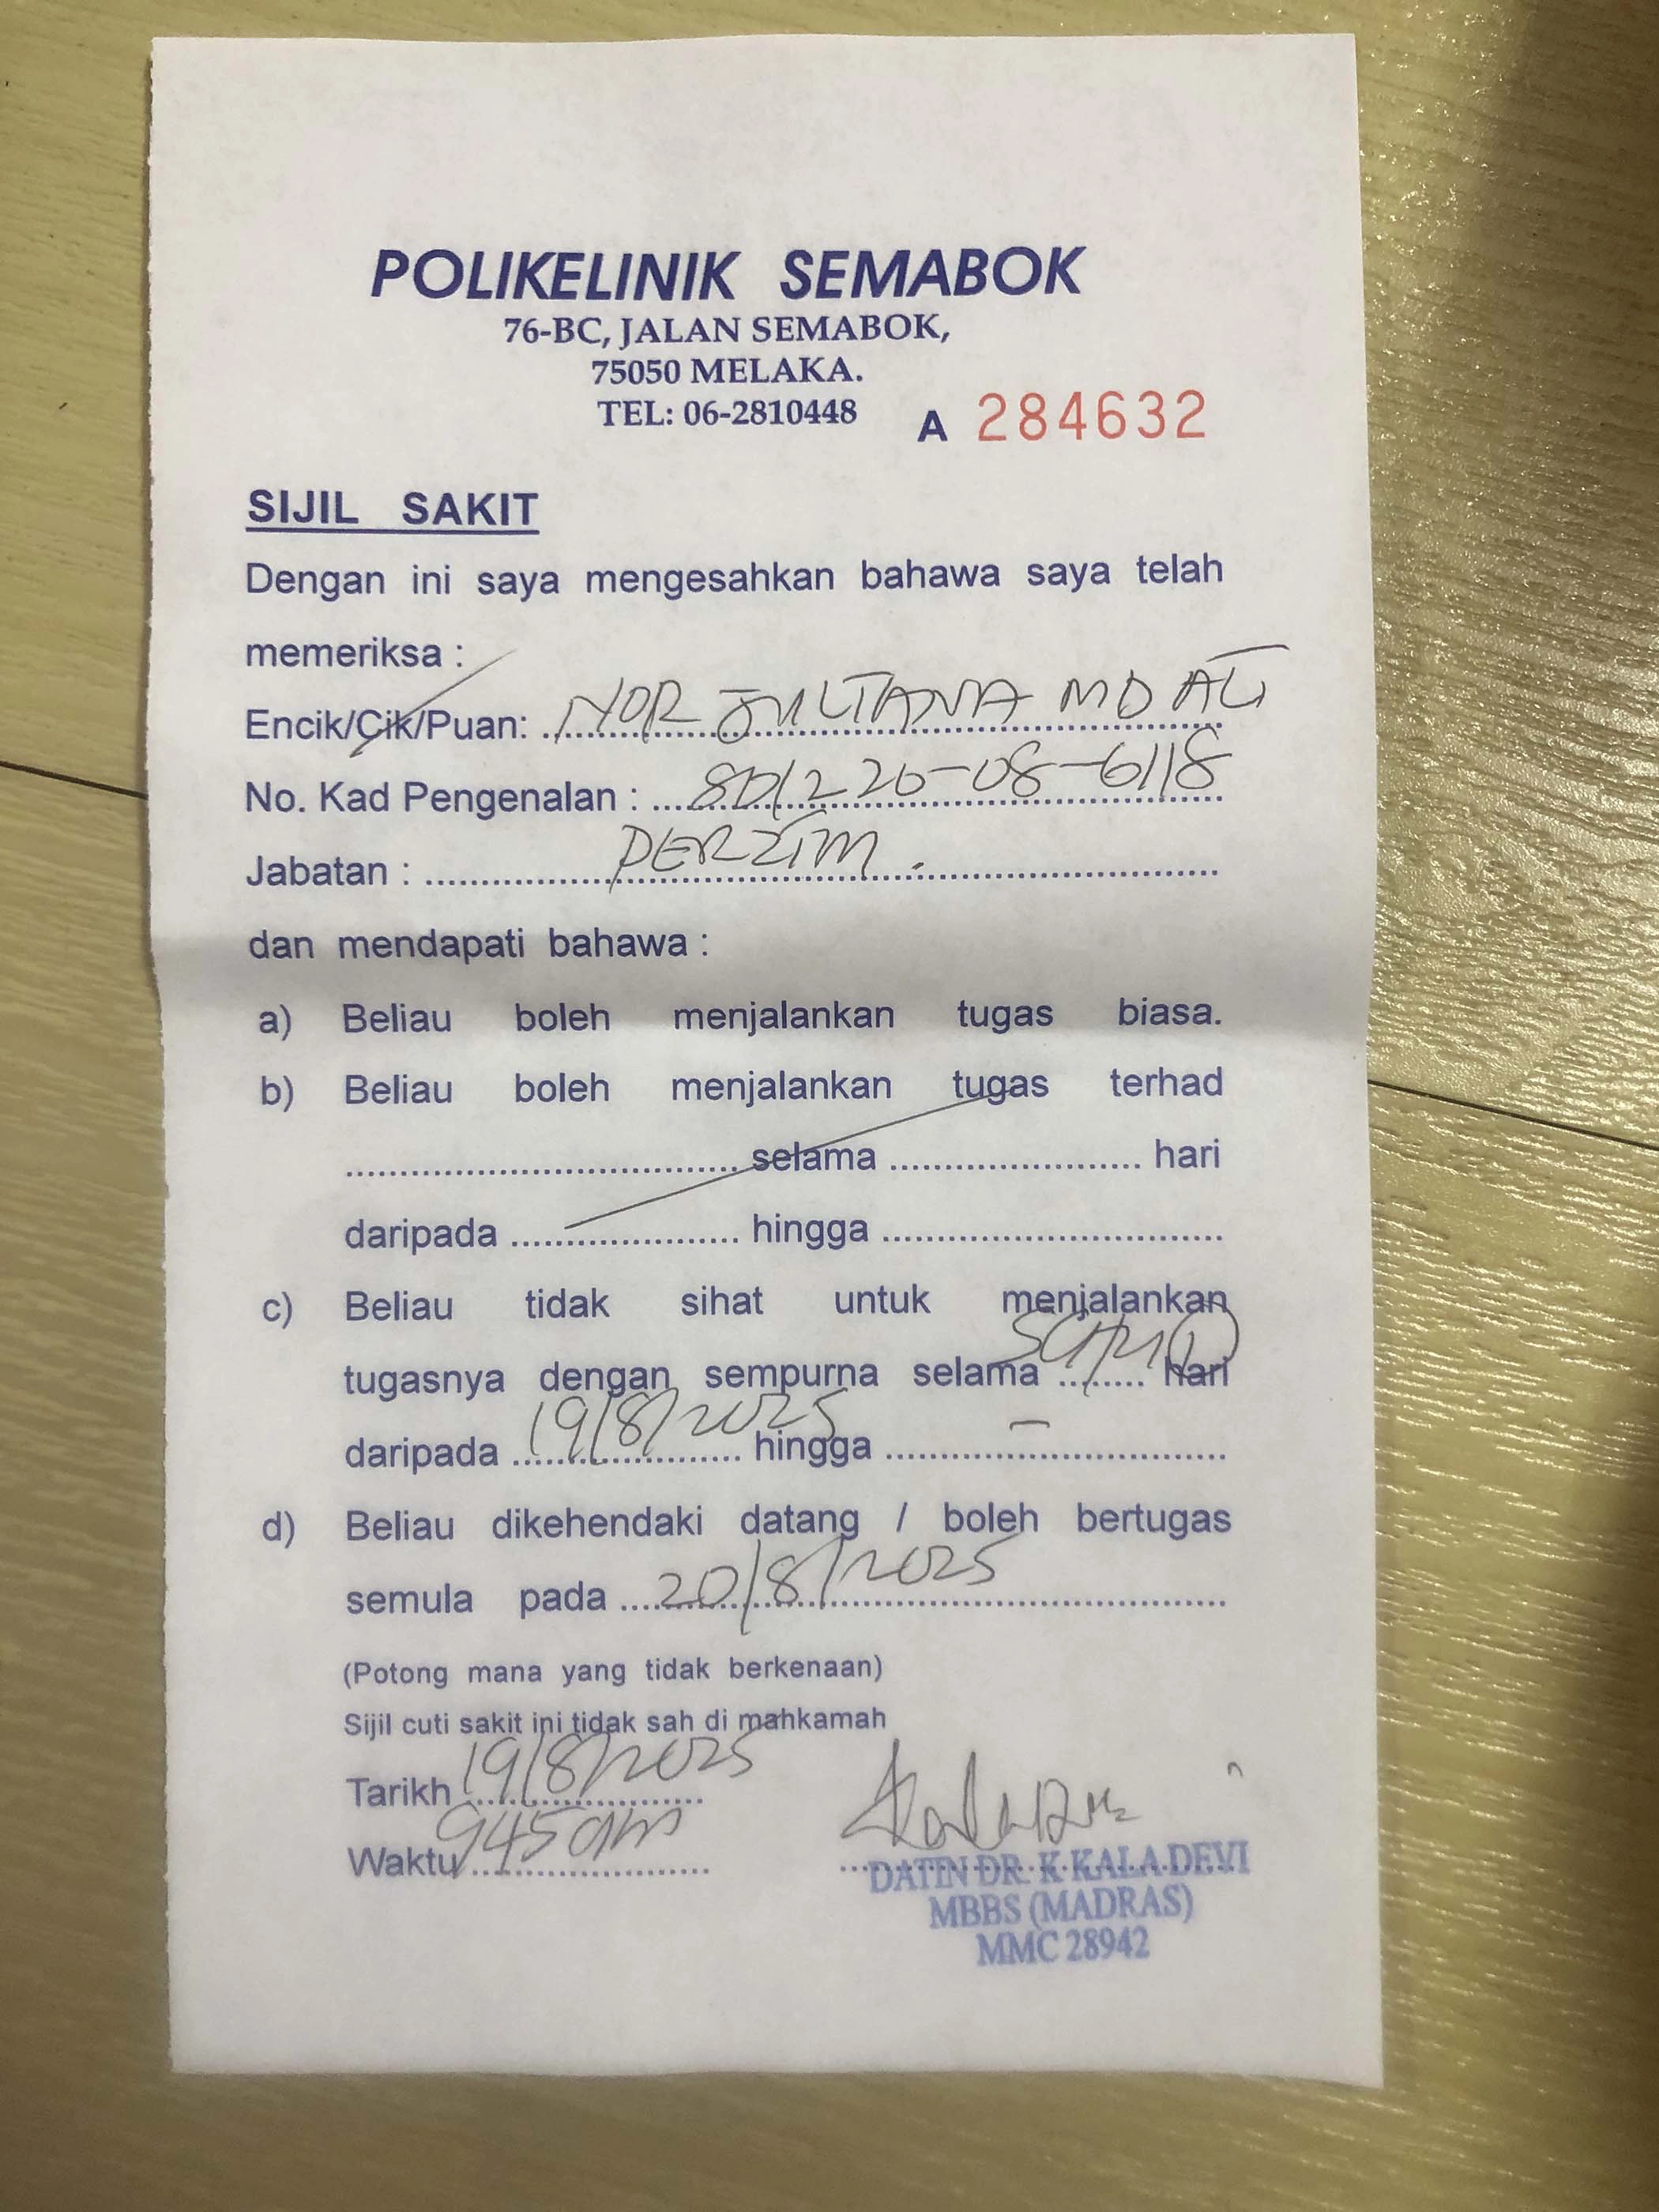 POLIKELINIK SEMABOK
76-BC, JALAN SEMABOK,
75050 MELAKA.
TEL: 06-2810448 A 284632
SIJIL SAKIT
Dengan ini saya mengesahkan bahawa saya telah
memeriksa :
Encik/Cik/Puan: NOR JULTANA MD ALI
No. Kad Pengenalan : 801220-08-6118
Jabatan : PERZIM.
dan mendapati bahawa :
a) Beliau boleh menjalankan tugas biasa.
b) Beliau boleh menjalankan tugas terhad
selama hari
daripada hingga
c) Beliau tidak sihat untuk menjalankan
tugasnya dengan sempurna selama SATU (1) hari
daripada 19/8/2025 hingga -
d) Beliau dikehendaki datang / boleh bertugas
semula pada 20/8/2025
(Potong mana yang tidak berkenaan)
Sijil cuti sakit ini tidak sah di mahkamah
Tarikh 19/8/2025
Waktu 945am
DATIN DR. K KALA DEVI
MBBS (MADRAS)
MMC 28942